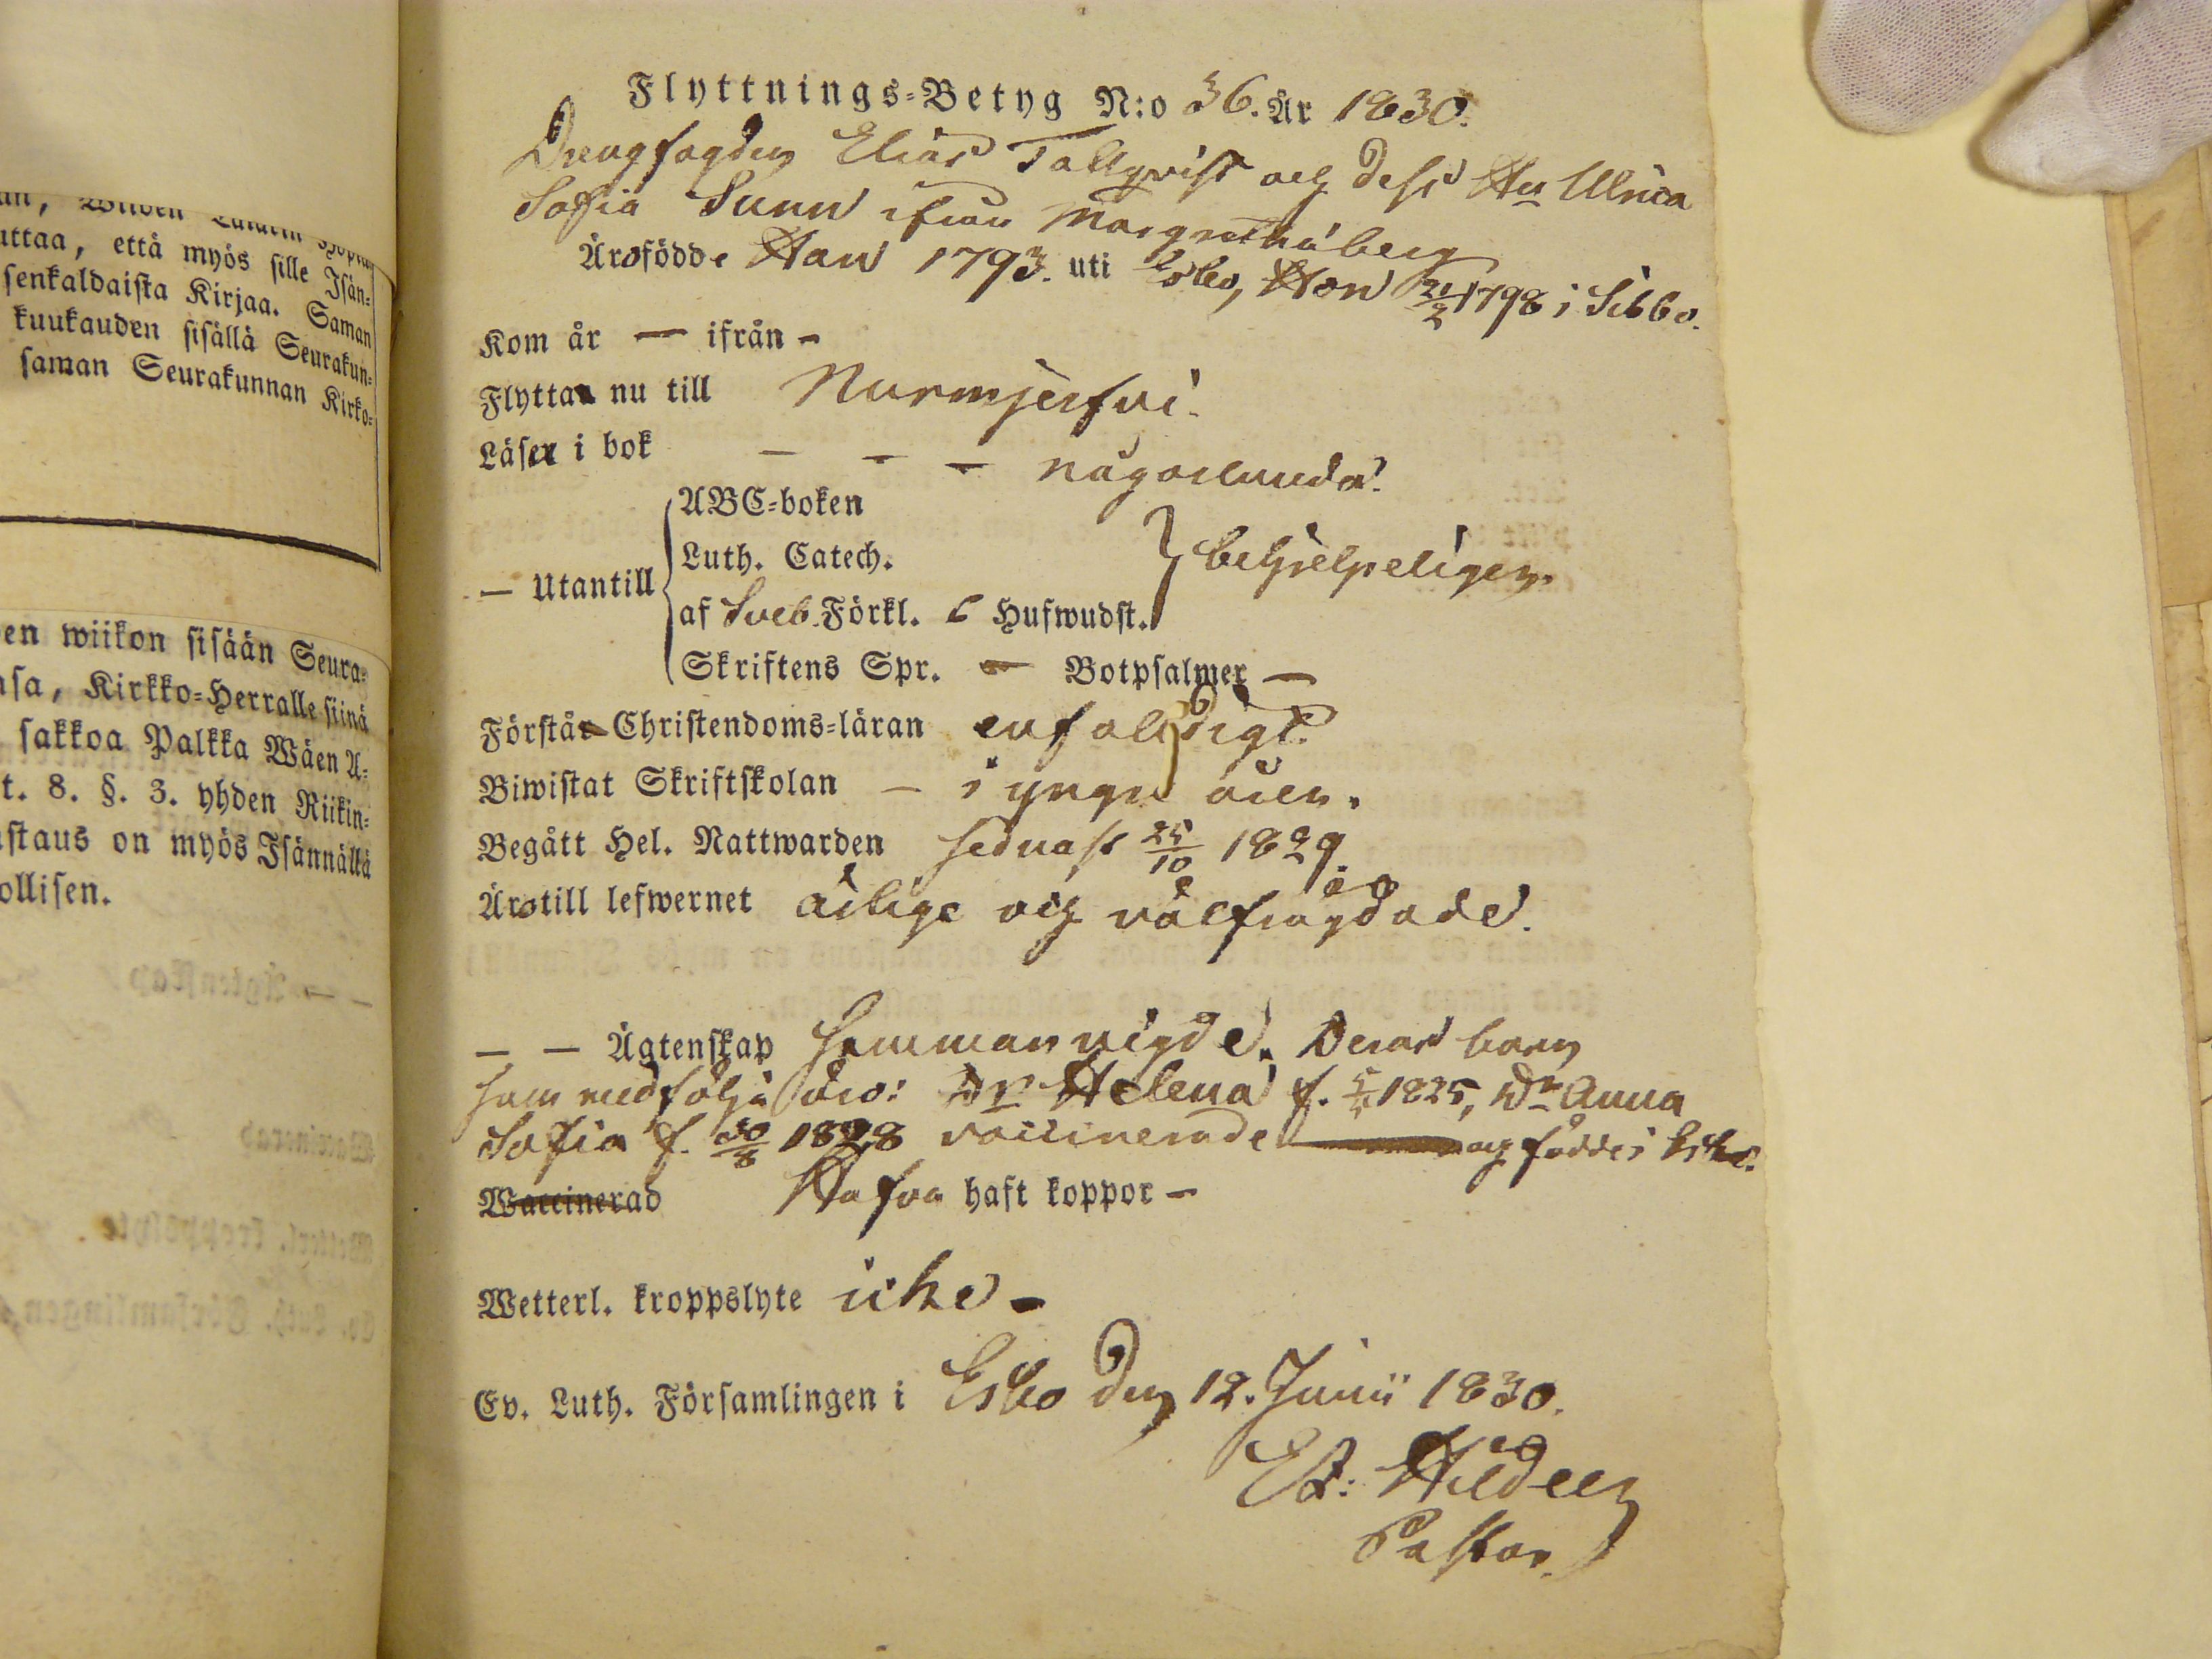 än, Wilden
uttaa, että myös sille Isän-
senkaldaista Kirjaa. Saman
kuukauden sisällä Seurakun-
saman Seurakunnan Kirko-
en wiikon sisään Seura-
nsa, Kirkko-Herralle siinä
sakkoa Palkka Wäen A-
t. 8. §. 3. yhden Riikin-
staus on myös Isännällä
ollisen.
Flyttnings-Betyg N:o 36. År 1830.
Drengfogden Elias Tallqvist och dess Hu Ulrica
Sofia Sunn ifrån Margretaberg
Äro födde Han 1793. uti Esbo, Hon 21/2 1798 i Sibbo.
Kom år — ifrån –
Flytta nu till Nurmjerfvi.
Läsa i bok — – – någorlunda.
— Utantill
ABC-boken
Luth. Catech. } behjelpeligen.
af Sveb. Förkl. 6 Hufwudst.
Skriftens Spr. — Botpsalmer —
Förstå Christendoms-läran enfaldigt.
Biwistat Skriftskolan — i yngre åren.
Begått Hel. Nattwarden sednast 25/10 1829.
Äro till lefwernet ärlige och välfrägdade.
— — Ägtenskap sammanvigde. Deras barn
som medfölja äro: Dr Helena f. 1825, Dr Anna
Sofia f. 30/8 1828 vaccinerade och födde i Esbo.
Waccinerad Hafva haft koppor –
Wetterl. kroppslyte icke –
Ev. Luth. Församlingen i Esbo den 12. Junii 1830.
Hildeen
Pastor.